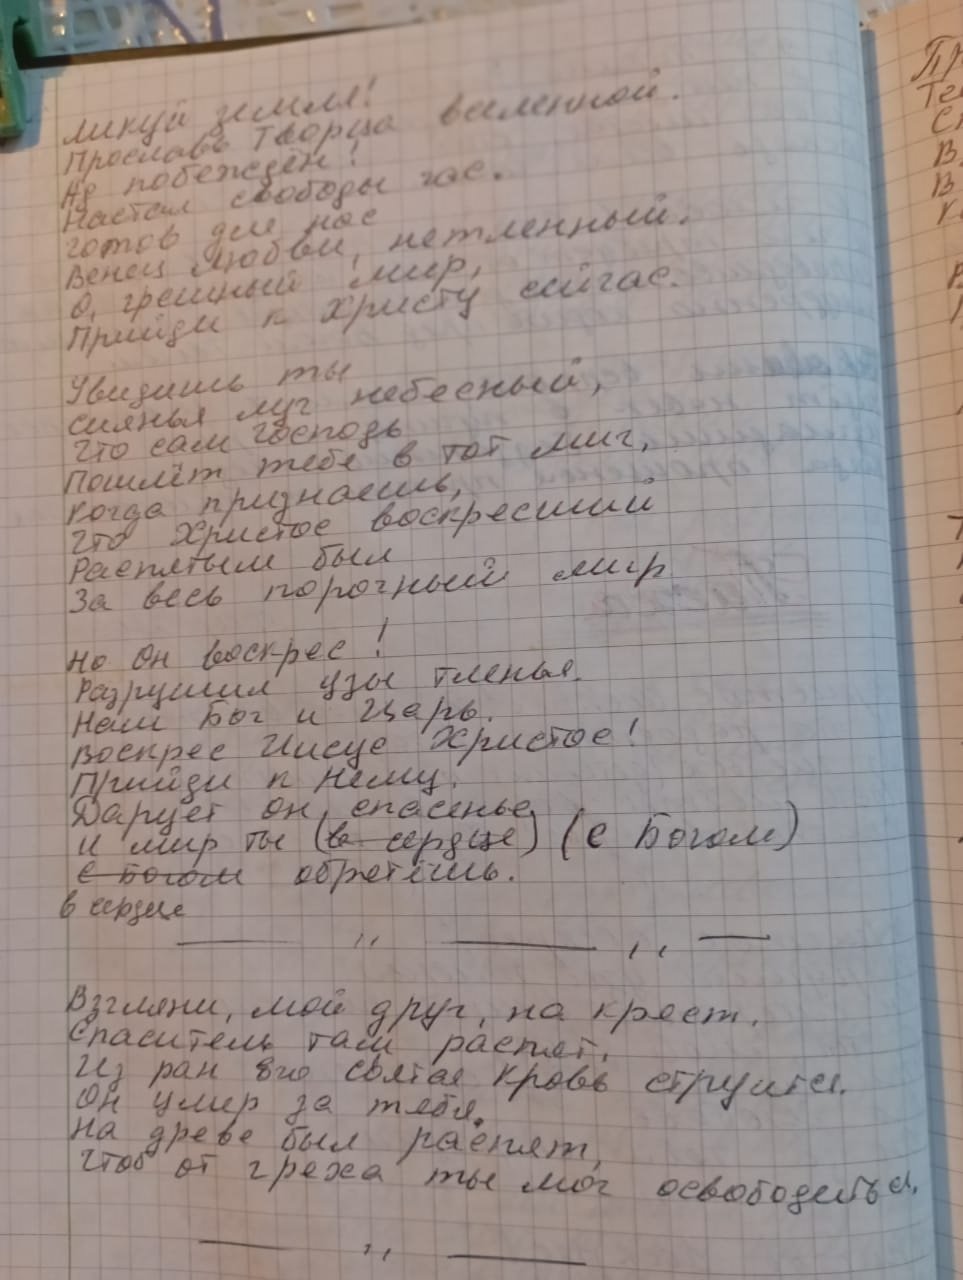 Ликуй земля!
Прославь Творца вселенной.
Ад побеждён!
Настал свободы час.
Готов для нас
Венец любви, нетленный.
О, грешный мир,
Прийди к Христу сейчас.
Увидишь ты
сиянья луч небесный,
Что сам Господь
Пошлёт тебе в тот миг,
Когда признаешь,
Что Христос воскресший
Распятым был
За весь порочный мир
Но Он воскрес!
Разрушил узы тленья.
Наш Бог и Царь.
Воскрес Иисус Христос!
Прийди к Нему.
Дарует Он спасенье
И мир ты (в сердце) (с Богом)
с Богом обретёшь.
в сердце
Взгляни, мой друг, на крест.
Спаситель там распят.
Из ран Его святая Кровь струится.
Он умер за тебя.
На древе был распят,
Чтоб от греха ты мог освободиться.
Пр
Те
Сп
В
В
К